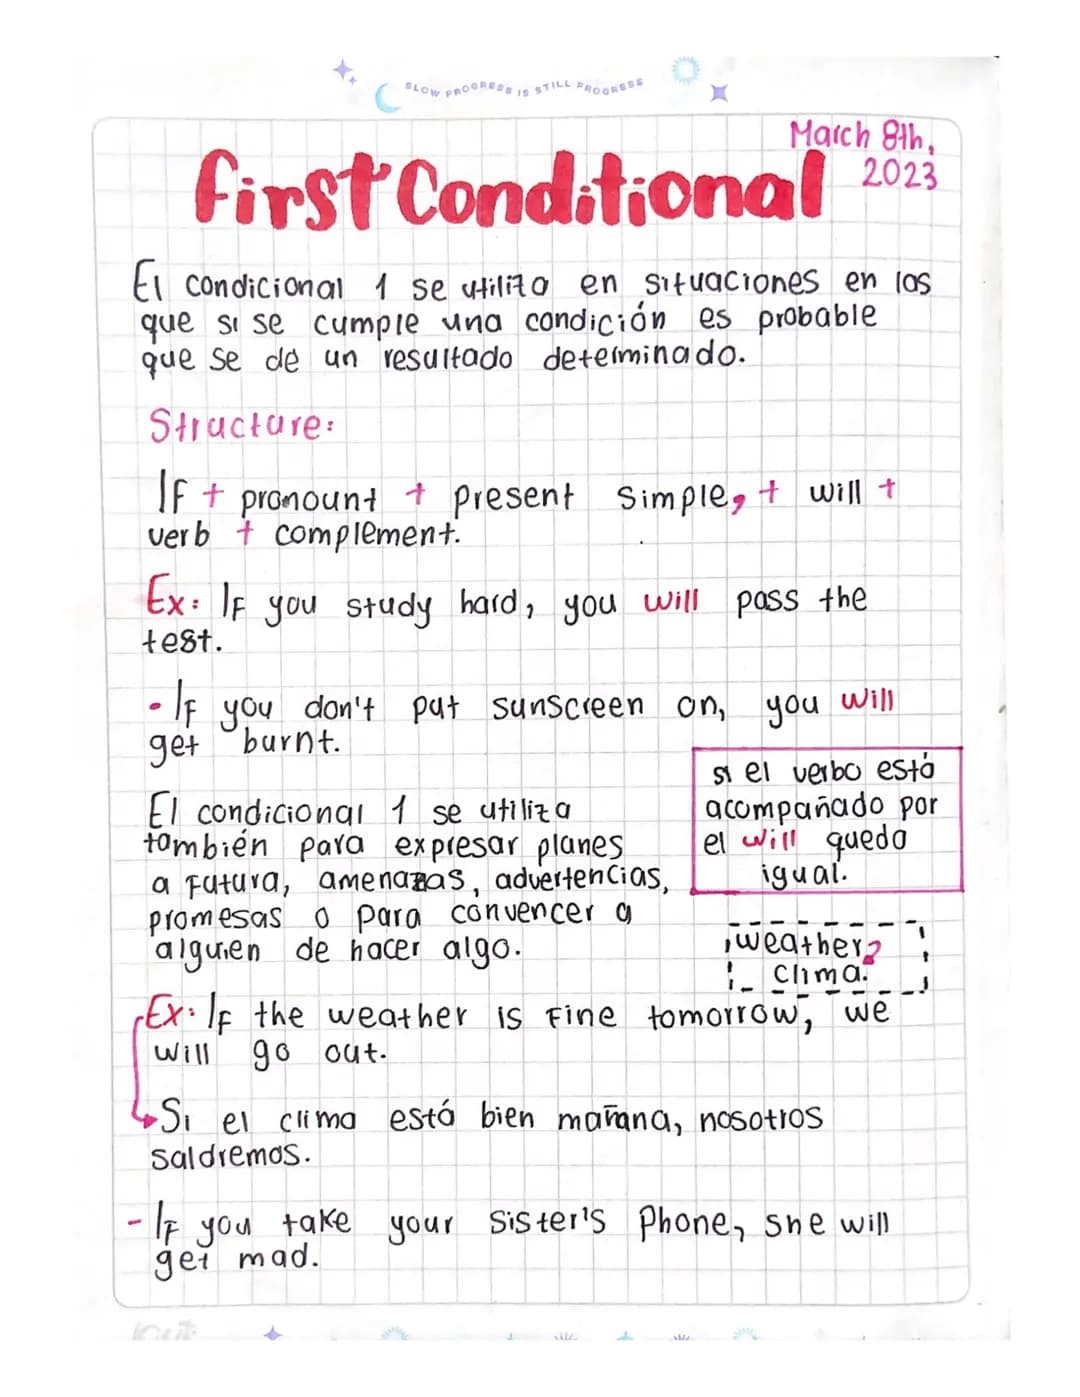 SLOW PROGRESS IS STILL PROGRESS
March 8th,
2023
First Conditional
El condicional 1 se utiliza en situaciones en las
que si se cumple una condición es probable
que se de un resultado determinado.
Structure:
If + pronount + present simple, + will +
verb + complement.
Ex: If you study hard, you will pass the
test.
- If you don't put sunscreen on, you will
get burnt.
si el verbo está
acompañado por
el will queda
igual.
El condicional 1 se utiliza
también para expresar planes
a futura, amenazas, advertencias,
promesas o para convencer a
alguien de hacer algo.
weather?
clima.
Ex: If the weather is fine tomorrow, we
will go out.
Si el clima está bien mañana, nosotros
saldremos.
- If you take your sister's phone, she will
get mad.